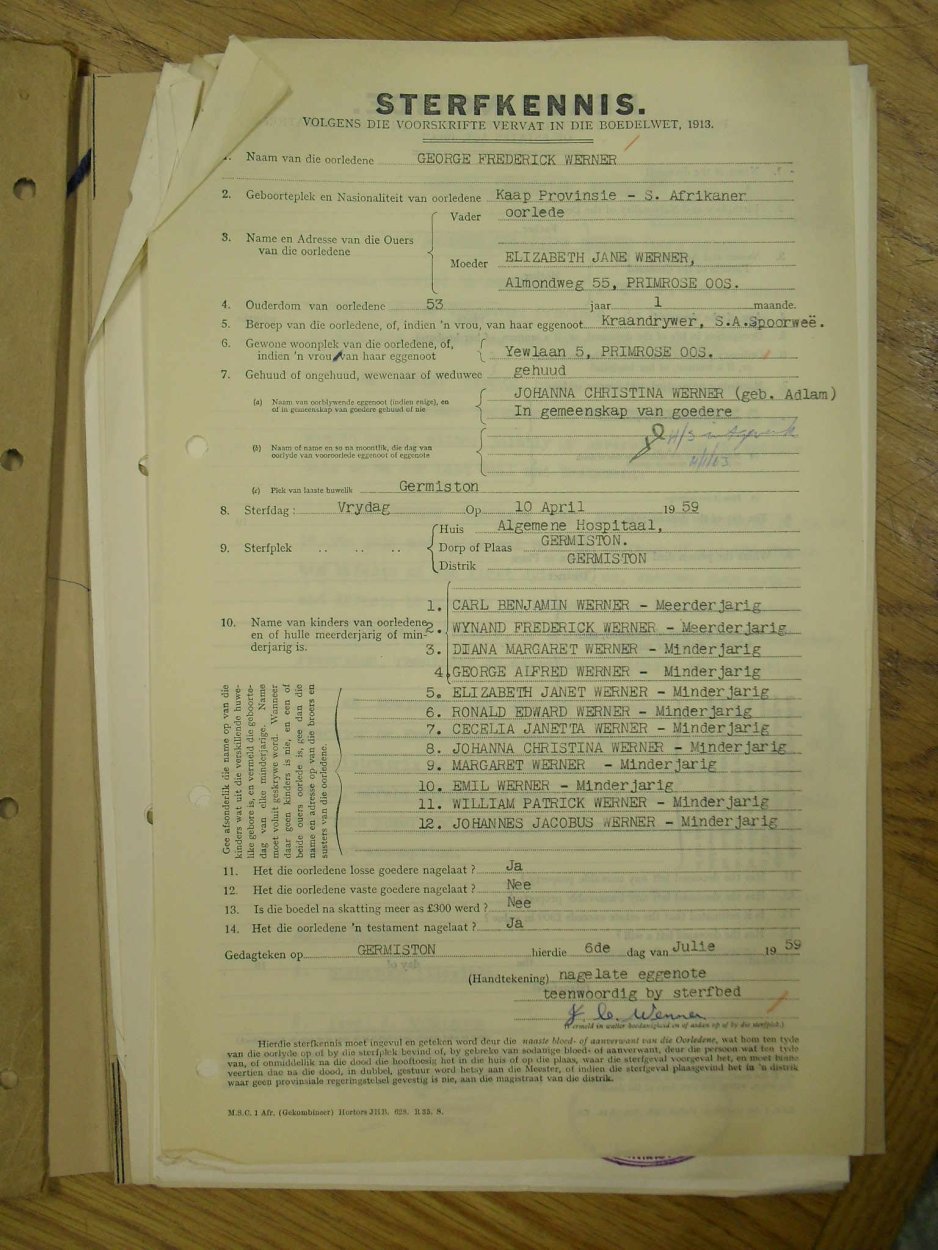 STERFKENNIS.
VOLGENS DIE VOORSKRIFTE VERVAT IN DIE BOEDELWET, 1913.
1. Naam van die oorledene GEORGE FREDERICK WERNER
2. Geboorteplek en Nasionaliteit van oorledene Kaap Provinsie - S. Afrikaner
3. Name en Adresse van die Ouers van die oorledene
Vader oorlede
Moeder ELIZABETH JANE WERNER,
Almondweg 55, PRIMROSE OOS.
4. Ouderdom van oorledene 53 jaar 1 maande.
5. Beroep van die oorledene, of, indien 'n vrou, van haar eggenoot Kraandrywer, S.A.Spoorweë.
6. Gewone woonplek van die oorledene, of,
indien 'n vrou van haar eggenoot Yewlaan 5, PRIMROSE OOS.
7. Gehuud of ongehuud, wewenaar of weduwee gehuud
(a) Naam van oorblywende eggenoot (indien enige), en
of in gemeenskap van goedere gehuud of nie
JOHANNA CHRISTINA WERNER (geb. Adlam)
In gemeenskap van goedere
(b) Naam of name en so na moontlik, die dag van
oorlyde van vooroorlede eggenoot of eggenote
(c) Plek van laaste huwelik Germiston
8. Sterfdag : Vrydag Op 10 April 19 59
9. Sterfplek .. .. ..
Huis Algemene Hospitaal,
Dorp of Plaas GERMISTON.
Distrik GERMISTON
10. Name van kinders van oorledene
en of hulle meerderjarig of min-
derjarig is.
1. CARL BENJAMIN WERNER - Meerderjarig
2. WYNAND FREDERICK WERNER - Meerderjarig
3. DIANA MARGARET WERNER - Minderjarig
4. GEORGE ALFRED WERNER - Minderjarig
5. ELIZABETH JANET WERNER - Minderjarig
6. RONALD EDWARD WERNER - Minderjarig
7. CECELIA JANETTA WERNER - Minderjarig
8. JOHANNA CHRISTINA WERNER - Minderjarig
9. MARGARET WERNER - Minderjarig
10. EMIL WERNER - Minderjarig
11. WILLIAM PATRICK WERNER - Minderjarig
12. JOHANNES JACOBUS WERNER - Minderjarig
Gee afsonderlik die name op van die
kinders wat uit die verskillende huwe-
like gebore is, en vermeld die geboorte-
dag van elke minderjarige. Name
moet voluit geskrywe word. Wanneer
daar geen kinders is nie, en een of
beide ouers oorlede is, gee dan die
name en adresse op van die broers en
susters van die oorledene.
11. Het die oorledene losse goedere nagelaat ? Ja
12. Het die oorledene vaste goedere nagelaat ? Nee
13. Is die boedel na skatting meer as £300 werd ? Nee
14. Het die oorledene 'n testament nagelaat ? Ja
Gedagteken op GERMISTON hierdie 6de dag van Julie 19 59
(Handtekening) nagelate eggenote
teenwoordig by sterfbed
J. C. Werner
(Vermeld in watter hoedanigheid en of anders op of by die sterfplek.)
Hierdie sterfkennis moet ingevul en geteken word deur die naaste bloed- of aanverwant van die Oorledene, wat hom ten tyde
van die oorlyde op of by die sterfplek bevind of, by gebreke van sodanige bloed- of aanverwant, deur die persoon wat ten tyde
van, of onmiddellik na die dood die hooftoesig het in die huis of op die plaas, waar die sterfgeval voorgeval het, en moet binne
veertien dae na die dood, in dubbel, gestuur word hetsy aan die Meester, of indien die sterfgeval plaasgevind het in 'n distrik
waar geen provinsiale regeringstelsel gevestig is nie, aan die magistraat van die distrik.
M.S.C. 1 Afr. (Gekombineer) Hortors JHB. 628. R 35. S.